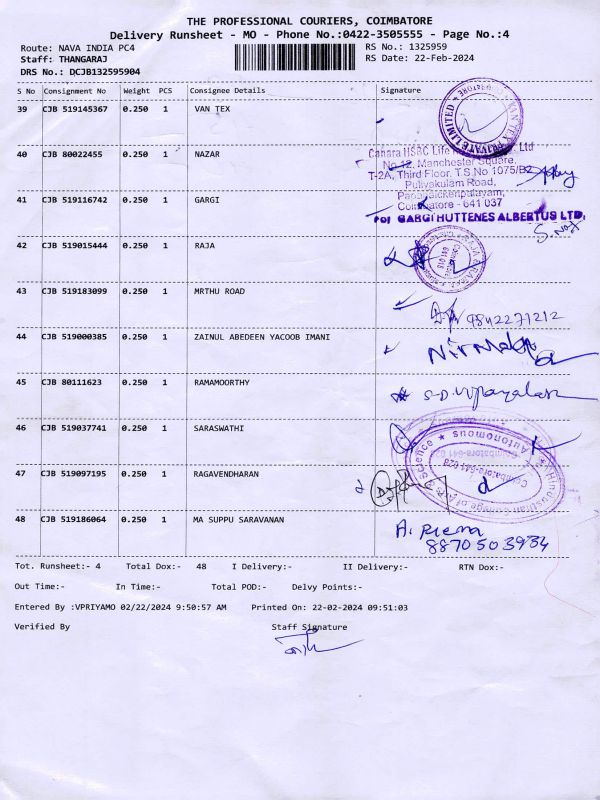 THE PROFESSIONAL COURIERS, COIMBATORE
Delivery Runsheet - MO - Phone No.:0422-3505555 - Page No.:4
Route: NAVA INDIA PC4
RS No.: 1325959
Staff: THANGARAJ
RS Date: 22-Feb-2024
DRS No.: DCJB132595904
S No Consignment No Weight PCS Consignee Details Signature
39 CJB 519145367 0.250 1 VAN TEX
VAN TEX PRIVATE LIMITED
40 CJB 80022455 0.250 1 NAZAR
Canara HSBC Life Ltd
No.12, Manchester Square,
T-2A, Third Floor, T.S.No 1075/B2
Puliyakulam Road,
Pappanaickenpalayam,
Coimbatore - 641 037
41 CJB 519116742 0.250 1 GARGI
For GARGI HUTTENES ALBERTUS LTD.
42 CJB 519015444 0.250 1 RAJA
43 CJB 519183099 0.250 1 MRTHU ROAD
9842271212
44 CJB 519000385 0.250 1 ZAINUL ABEDEEN YACOOB IMANI
Nirmala
45 CJB 80111623 0.250 1 RAMAMOORTHY
46 CJB 519037741 0.250 1 SARASWATHI
Autonomous
47 CJB 519097195 0.250 1 RAGAVENDHARAN
Coimbatore-641 028
48 CJB 519186064 0.250 1 MA SUPPU SARAVANAN
8870503934
Tot. Runsheet:- 4 Total Dox:- 48 I Delivery:- II Delivery:- RTN Dox:-
Out Time:- In Time:- Total POD:- Delvy Points:-
Entered By :VPRIYAMO 02/22/2024 9:50:57 AM Printed On: 22-02-2024 09:51:03
Verified By Staff Signature